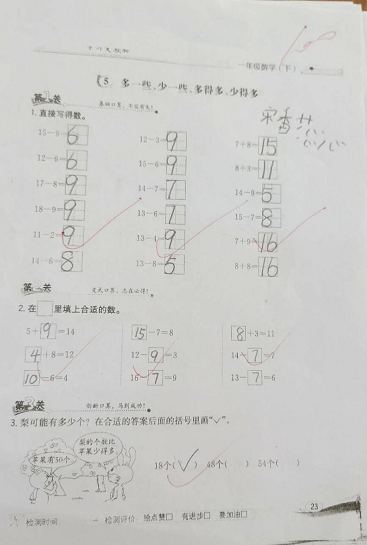 一年级数学(下)
5 多一些、少一些、多得多、少得多
第一关
1.直接写得数。
15-9=6 12-3=9 7+8=15
12-6=6 15-6=9 8+3=11
17-8=9 14-7=7 14-9=5
18-9=9 13-6=7 15-7=8
11-2=9 13-4=9 7+9=16
14-6=8 13-8=5 8+8=16
2.在□里填上合适的数。
5+9=14 15-7=8 8+3=11
4+8=12 12-9=3 14-7=7
10-6=4 16-7=9 13-7=6
3.梨可能有多少个?在合适的答案后面的括号里画“✓”。
苹果有50个
梨的个数比
苹果少得多
18个(✓) 48个( ) 54个( )
23
检测时间 检测评价 给点赞□ 有进步□ 要加油□